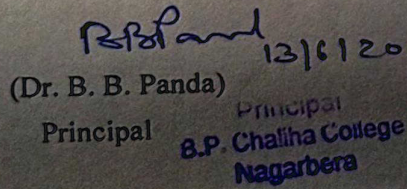 BBPand 13/6/20
(Dr. B. B. Panda)
Principal
Principal
B.P. Chaliha College
Nagarbera